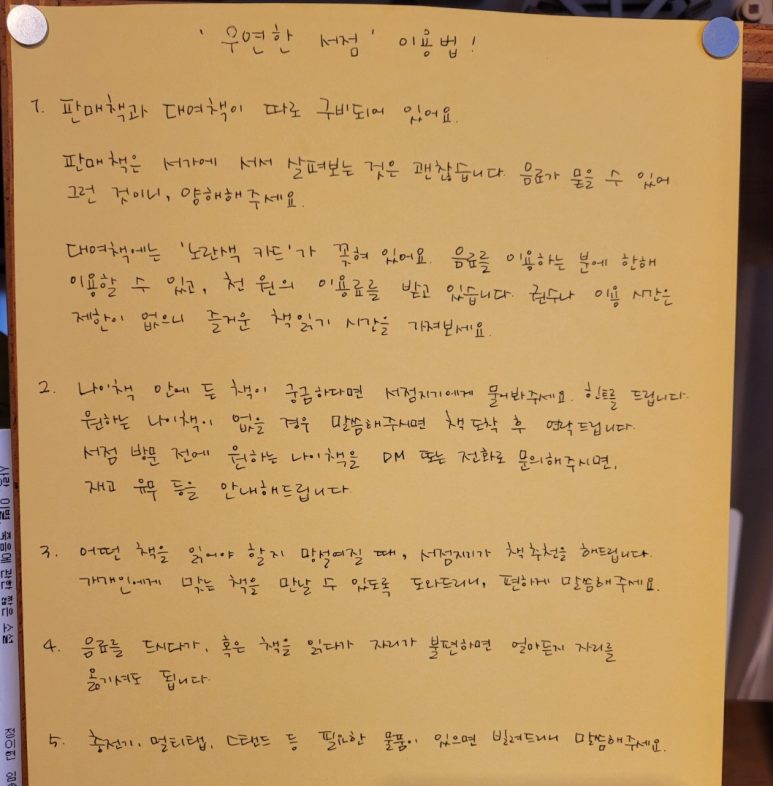 '우연한 서점' 이용법!
1. 판매책과 대여책이 따로 구비되어 있어요.
판매책은 서가에 서서 살펴보는 것은 괜찮습니다. 음료가 묻을 수 있어
그런 것이니, 양해해주세요.
대여책에는 '노란색 카드'가 꽂혀 있어요. 음료를 이용하는 분에 한해
이용할 수 있고, 천 원의 이용료를 받고 있습니다. 권수나 이용 시간은
제한이 없으니 즐거운 책읽기 시간을 가져보세요.
2. 나이책 안에 든 책이 궁금하다면 서점지기에게 물어봐주세요. 힌트를 드립니다.
원하는 나이책이 없을 경우 말씀해주시면 책 도착 후 연락드립니다.
서점 방문 전에 원하는 나이책을 DM 또는 전화로 문의해주시면,
재고 유무 등을 안내해드립니다.
3. 어떤 책을 읽어야 할지 망설여질 때, 서점지기가 책 추천을 해드립니다.
각개인에게 맞는 책을 만날 수 있도록 도와드리니, 편하게 말씀해주세요.
4. 음료를 드시다가, 혹은 책을 읽다가 자리가 불편하면 얼마든지 자리를
옮기셔도 됩니다.
5. 충전기, 멀티탭, 스탠드 등 필요한 물품이 있으면 빌려드리니 말씀해주세요.
사랑, 이별, 죽음에 관한 짧은 소설